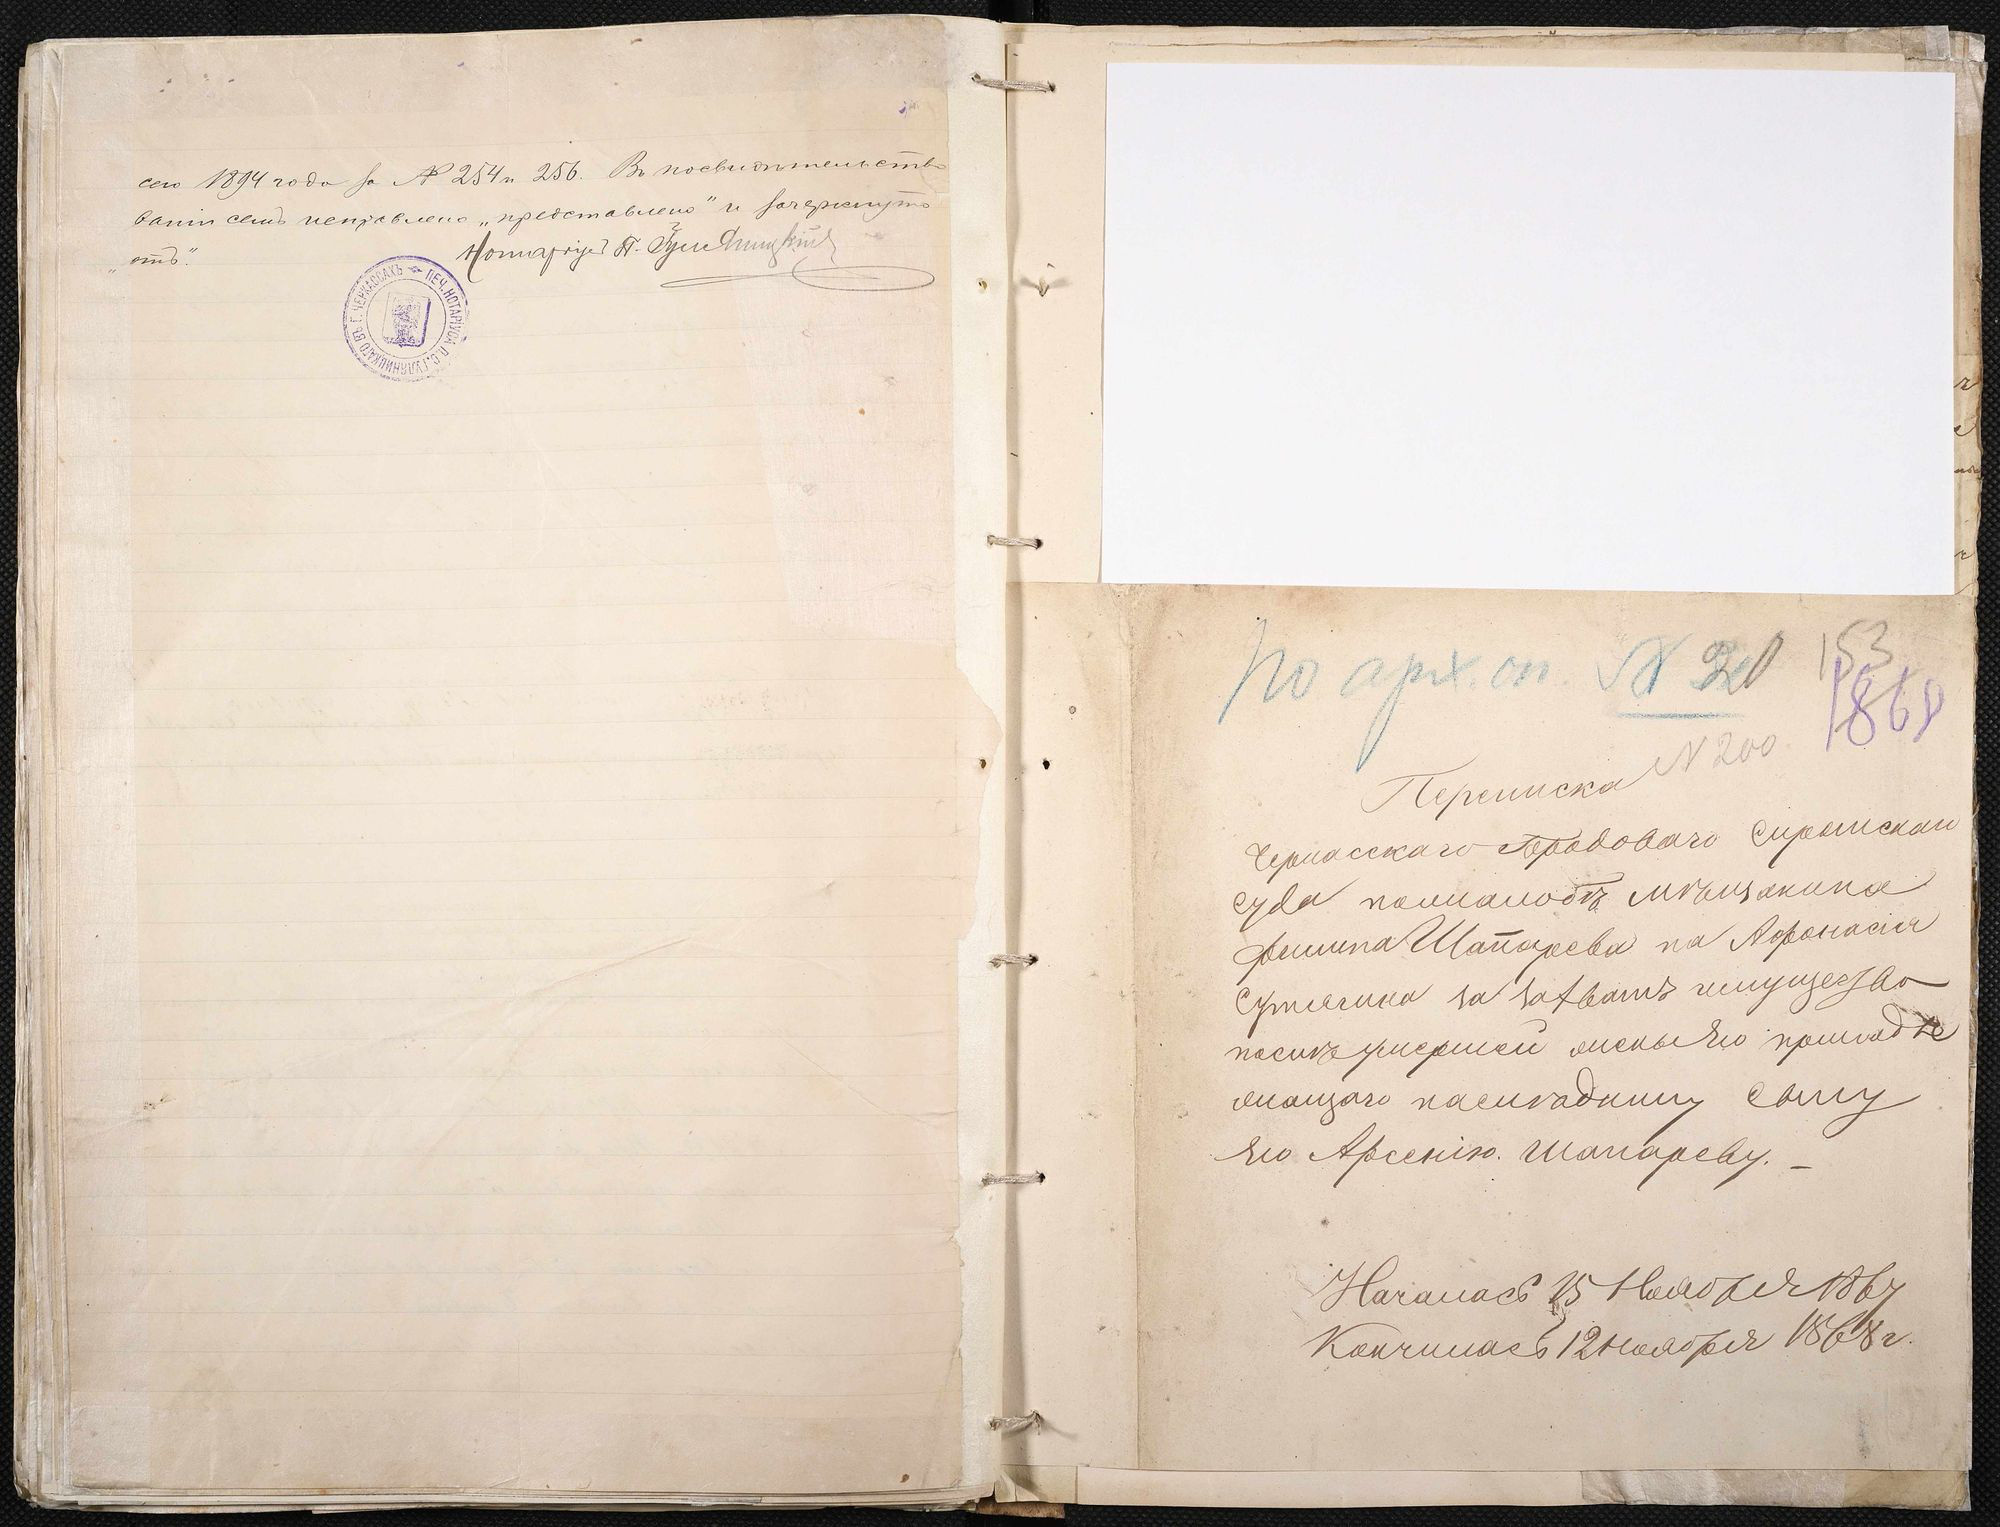 сего 1894 года за № 254 и 256. Въ посвидѣтельство
ваніи семъ исправлено „представлено" и зачеркнуто
„отъ."
Нотаріусъ П. Гуляницкій
ПЕЧ. НОТАРІУСА П. С. ГУЛЯНИЦКАГО ВЪ Г. ЧЕРКАССАХЪ
По арх. оп. №
153
1868
N 200
Переписка
Черкасскаго Градоваго Сиротскаго
Суда по жалобѣ мѣщанина
Филипа Шапарева на Афонасія
Сутягина за захватъ имущество
послѣ умершей жены его принадле
жащаго наслѣднику Сыну
его Арсенію Шапареву. –
Началась 15 Ноября 1867
Кончилась 12 ноября 1868 г.